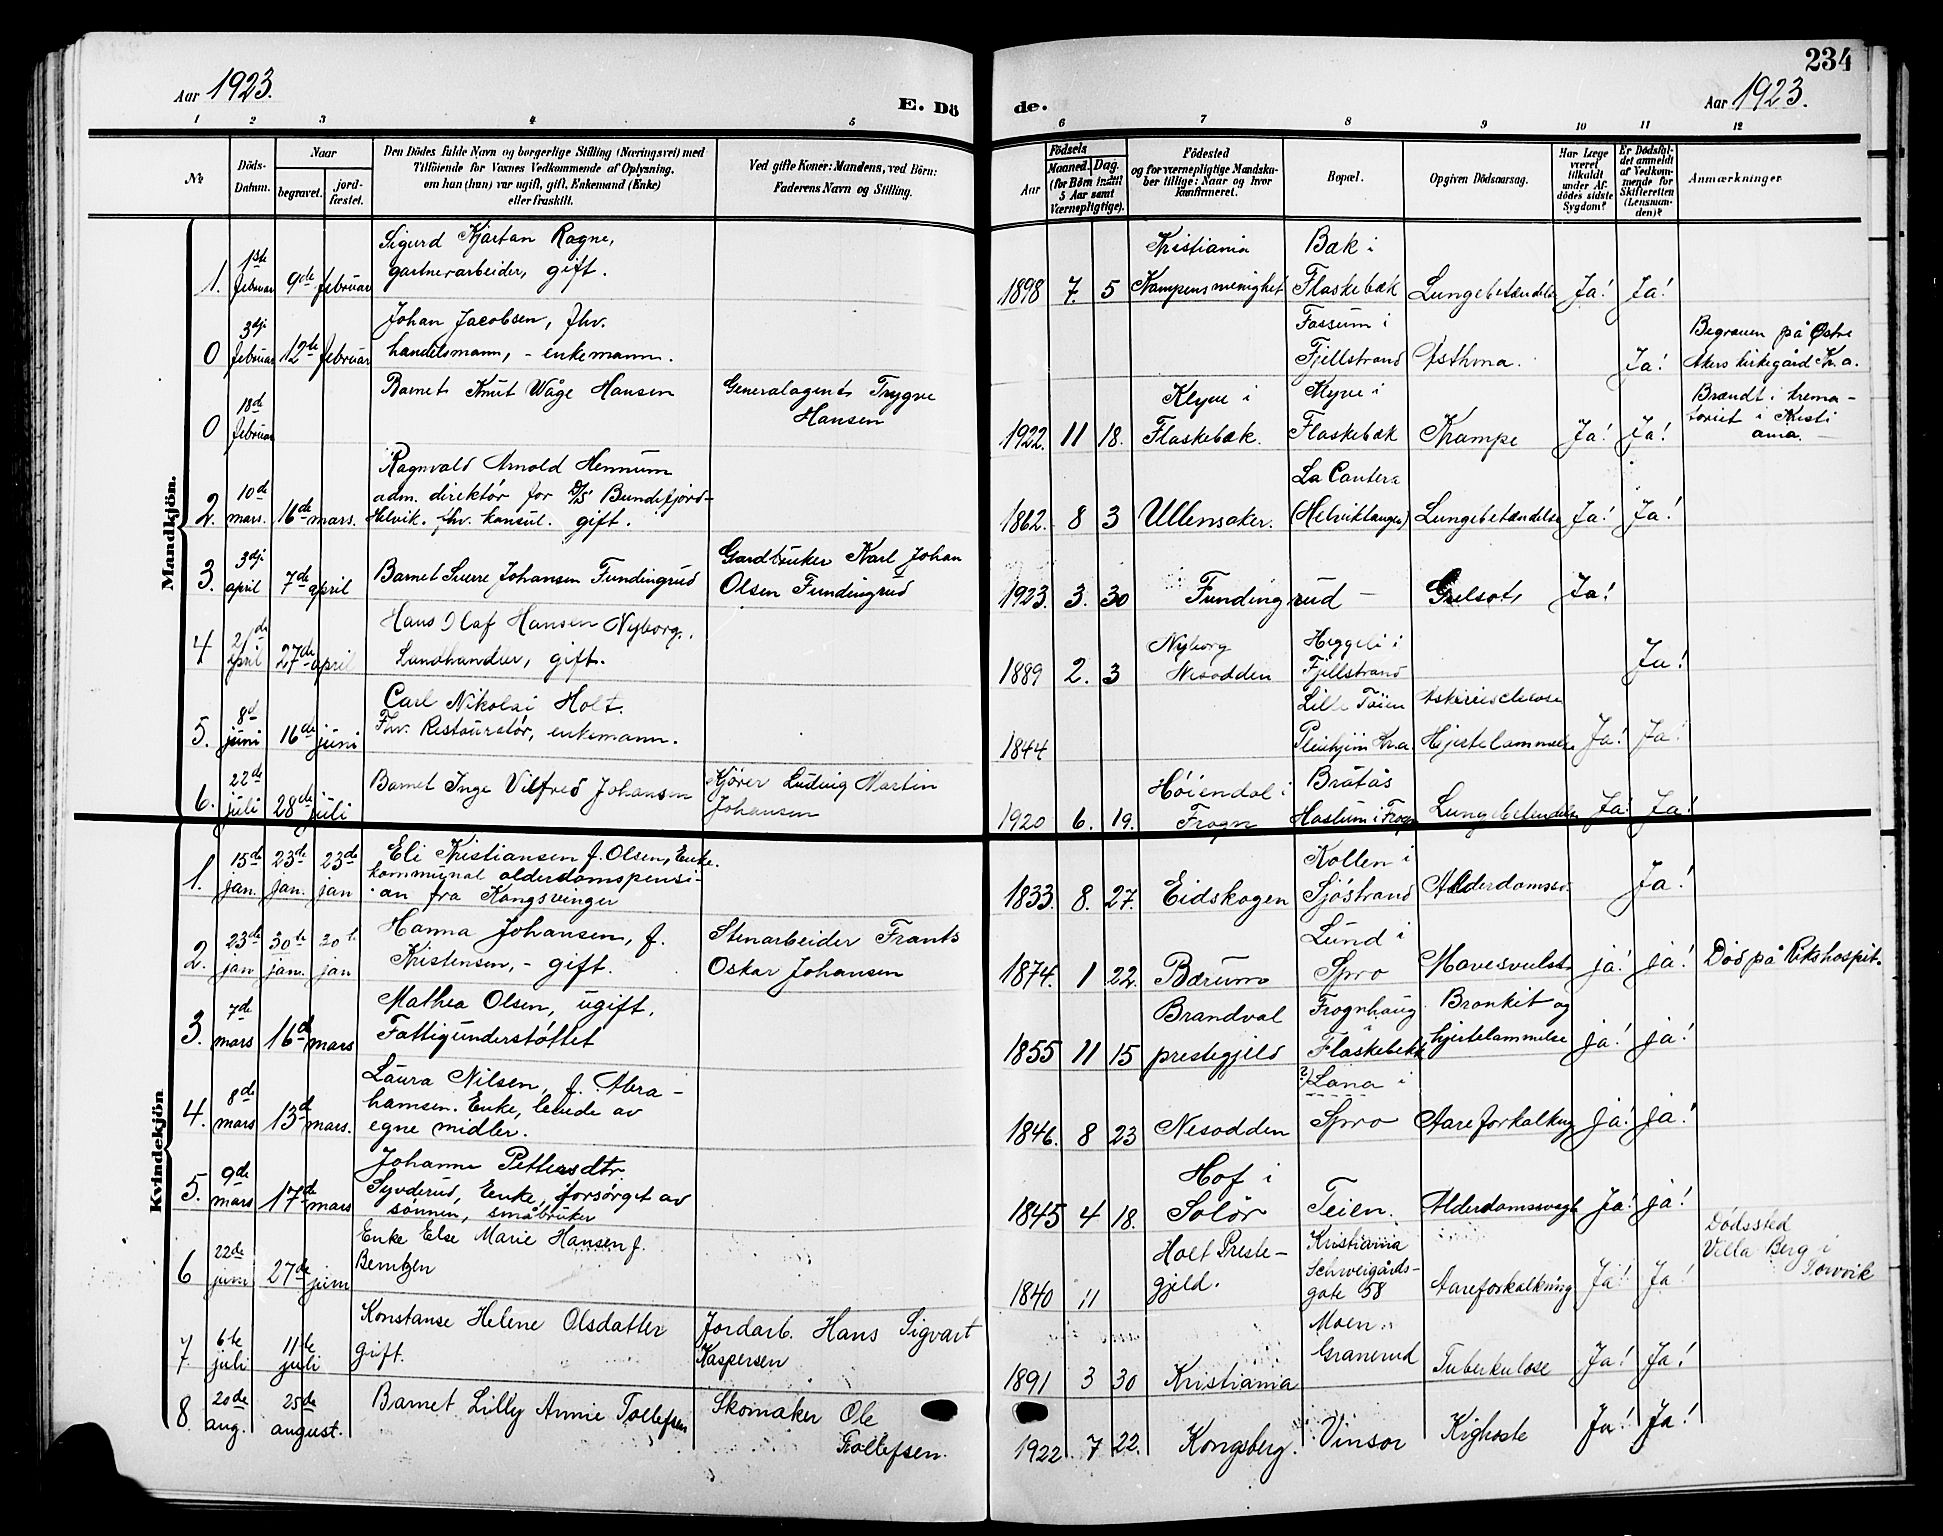 234
Aar 1923.
E. Dö
de.
Aar 1923.
1 2 3 4 5 6 7 8 9 10 11 12
№
Döds-
Datum.
Naar
begravet.
jord-
fæstet.
Den Dödes fulde Navn og borgerlige Stilling (Næringsvei) med
Tilföiende for Voxnes Vedkommende af Oplysning,
om han (hun) var ugift, gift, Enkemand (Enke)
eller fraskilt.
Ved gifte Koner: Mandens, ved Börn:
Faderens Navn og Stilling.
Födsels
Aar
Maaned.
Dag.
(for Börn indtil
5 Aar samt
Værnepligtige).
Födested
og for værnepligtige Mandska-
ber tillige: Naar og hvor
konfirmeret.
Bopæl.
Opgiven Dödsaarsag.
Har Læge
været
tilkaldt
under Af-
dödes sidste
Sygdom?
Er Dödsfal-
det anmeldt
af Vedkom-
mende for
Skifteretten
(Lensman-
den)?
Anmærkninger
Mandkjön.
1. 1ste februar 9de februar
Sigurd Kjartan Ragne,
gartnerarbeider, gift.
1898 7 5
Kristiania
Kampens menighet
Bak i
Flaskebæk
Lungebetændelse Ja! Ja!
0 3dje februar 12te februar
Johan Jacobsen, fhv.
handelsmann, - enkemann.
Fossum i
Fjellstrand
Asthma. Ja!
Begraven på Østre
Akers kirkegård Kr.a.
0 18de februar
Barnet Knut Wåge Hansen
Generalagent Trygve
Hansen
1922. 11 18.
Klyve i
Flaskebæk.
Klyve i
Flaskebæk
Krampe Ja! Ja!
Brændt i krema-
toriet i Kristi
ania.
2. 10de mars. 16de mars.
Ragnvald Arnold Hennum
adm. direktör for A/S Bundefjord-
Helvik. fhv. konsul. gift.
1862. 8 3 Ullensaker.
La Cantera
(Helviktangen)
Lungebetændelse Ja! Ja!
3. 3dje april 7de april
Barnet Sverre Johansen Fundingrud
Gardbruker Karl Johan
Olsen Fundingrud
1923. 3. 30 Fundingrud - Gulsot, Ja!
4 april 27de april
Hans Olaf Hansen Nyborg.
Landhandler, gift.
1889 2. 3
Nyborg
Nesodden
Heggeli i
Fjellstrand
Ja!
5. 8de juni 16de juni
Carl Nikolai Holt.
Fhv. Restauratør, enkemann.
1844
Lille Töien
Pleiehjem Kr.a.
Hjertelammelse Ja! Ja!
6. 22de juli 28de juli
Barnet Inge Vilfred Johansen
Kjörer Ludvig Martin
Johansen
1920 6. 19.
Höiendal i
Frogn
Bråtås
Haslum i Frogn
Lungebetendelse Ja! Ja!
Kvindekjön
1. 15de jan. 23de jan. 23de jan
Eli Kristiansen f. Olsen, Enke.
kommunal alderdomspensi-
on fra Kongsvinger
1833. 8. 27. Eidskogen
Kollen i
Sjöstrand
Alderdomssv. Ja!
2. 23de jan 30te jan. 30te jan
Hanna Johansen, f.
Kristensen, - gift.
Stenarbeider Frants
Oskar Johansen
1874. 1 22. Bærum
Lund i
Spro
Mavesvulst ja! ja!
Död på Rikshospit.
3. 7de mars 16de mars
Mathea Olsen, ugift,
Fattigunderstöttet
1855 11 15
Brandval
prestegjeld
Frognhaug
i
Flaskebekk
Bronkit og
hjertelammelse ja! ja!
4. 8de mars 13de mars.
Laura Nilsen, f. Abra-
hamsen. Enke, levede av
egne midler.
1846. 8 23 Nesodden
?) Lana i
Spro
Aareforkalkng ja! ja!
5. 9de mars 17de mars
Johanne Pettersdtr.
Syvderud, Enke, forsörget av
sönnen, småbruker
1845 4 18.
Hof i
Solör
Teien.
Alderdomssvagh Ja! ja!
6 22de juni 27de juni
Enke Else Marie Hansen f.
Berntzen
1840 11
Holt Preste-
gjeld.
Kristiania
Schweigårds-
gate 58
Aareforkalkning Ja! Ja!
Dödssted
Villa Berg i
Torvik
7. 6te juli 11te juli
Konstanse Helene Olsdatter
gift.
Jordarb. Hans Sigvart
Kaspersen
1891 3 30 Kristiania
Moen
Granerud
Tuberkulose Ja! Ja!
8 20de aug. 25de august.
Barnet Lilly Annie Tollefsen
Skomaker Ole
Tollefsen.
1922 7 22. Kongsberg. Vinsor Kighoste Ja! Ja!